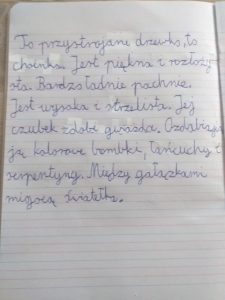 To przystrojone drzewko, to
choinka. Jest piękna i rozłoży
sta. Bardzo ładnie pachnie.
Jest wysoka i strzelista. Jej
czubek zdobi gwiazda. Ozdabiają
ją kolorowe bombki, łańcuchy i
serpentyny. Między gałązkami
migocą światełka.